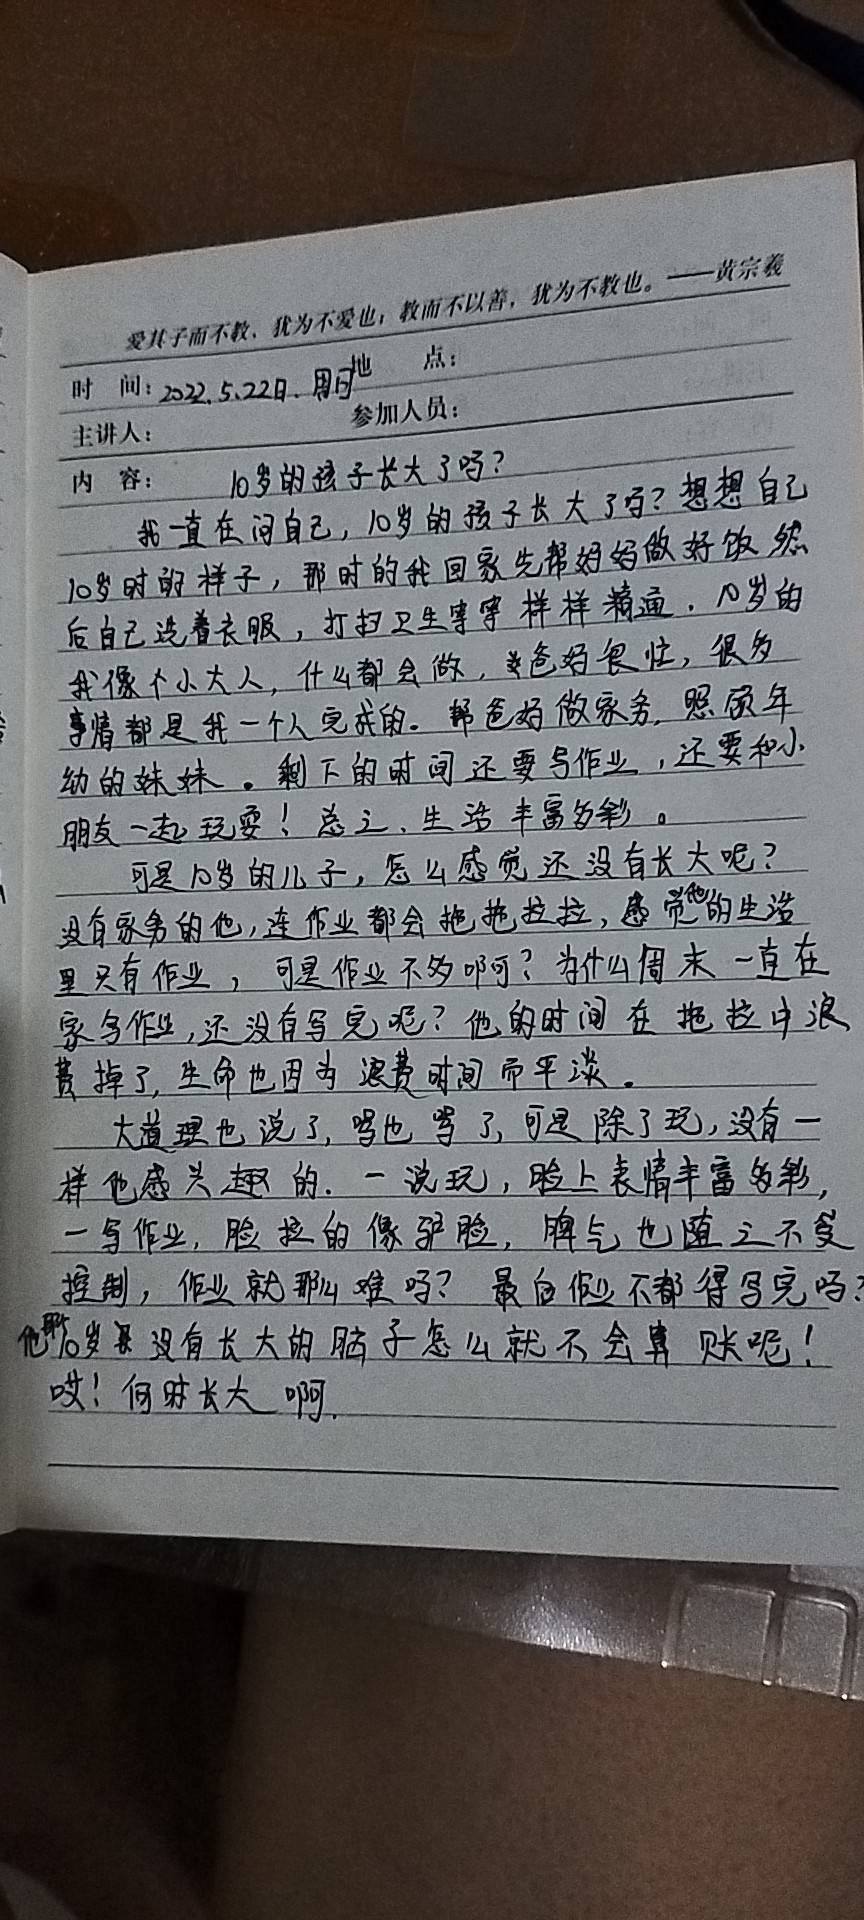 爱其子而不教，犹为不爱也；教而不以善，犹为不教也。——黄宗羲
时 间：2022.5.22日.周日 地 点：
主讲人： 参加人员：
内 容： 10岁的孩子长大了吗？
我一直在问自己，10岁的孩子长大了吗？想想自己
10岁时的样子，那时的我回家先帮妈妈做好饭然
后自己洗着衣服，打扫卫生等等样样精通．10岁的
我像个小大人，什么都会做，爸妈很忙，很多
事情都是我一个人完成的。帮爸妈做家务，照顾年
幼的妹妹。剩下的时间还要写作业，还要和小
朋友一起玩耍！总之、生活丰富多彩。
可是10岁的儿子，怎么感觉还没有长大呢？
没有家务的他，连作业都会拖拖拉拉，感觉他的生活
里只有作业，可是作业不多啊？为什么周末一直在
家写作业，还没有写完呢？他的时间在拖拉中浪
费掉了，生命也因为浪费时间而平淡。
大道理也说了，骂也骂了，可是除了玩，没有一
样他感兴趣的．一说玩，脸上表情丰富多彩，
一写作业，脸拉的像驴脸，脾气也随之不受
控制，作业就那么难吗？最后作业不都得写完吗？
他那10岁没有长大的脑子怎么就不会算账呢！
哎！何时长大啊．